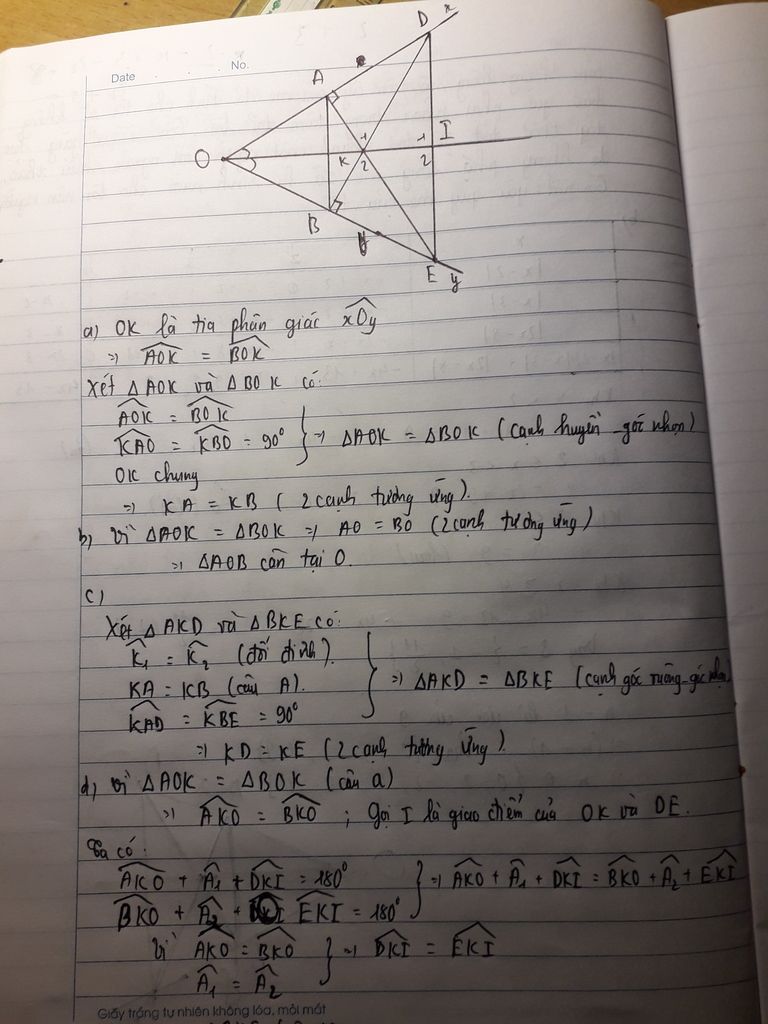 Date
No.
D x
A
O
K 1 2
1 2 I
B
E y
a) OK là tia phân giác xOy
=> AOK = BOK
Xét △AOK và △BOK có:
AOK = BOK
KAO = KBO = 90° } => △AOK = △BOK (cạnh huyền - góc nhọn)
OK chung
=> KA = KB (2 cạnh tương ứng).
b) Vì △AOK = △BOK => AO = BO (2 cạnh tương ứng)
=> △AOB cân tại O.
c)
Xét △AKD và △BKE có:
K1 = K2 (đối đỉnh).
KA = KB (câu A). } => △AKD = △BKE (cạnh góc vuông - góc nhọn)
KAD = KBE = 90°
=> KD = KE (2 cạnh tương ứng).
d) Vì △AOK = △BOK (câu a)
=> AKO = BKO ; Gọi I là giao điểm của OK và DE.
Ta có:
AKO + A1 + DKI = 180° } => AKO + A1 + DKI = BKO + A2 + EKI
BKO + A2 + EKI = 180°
Vì AKO = BKO } => DKI = EKI
A1 = A2
Giấy trắng tự nhiên không lóa, mỏi mắt